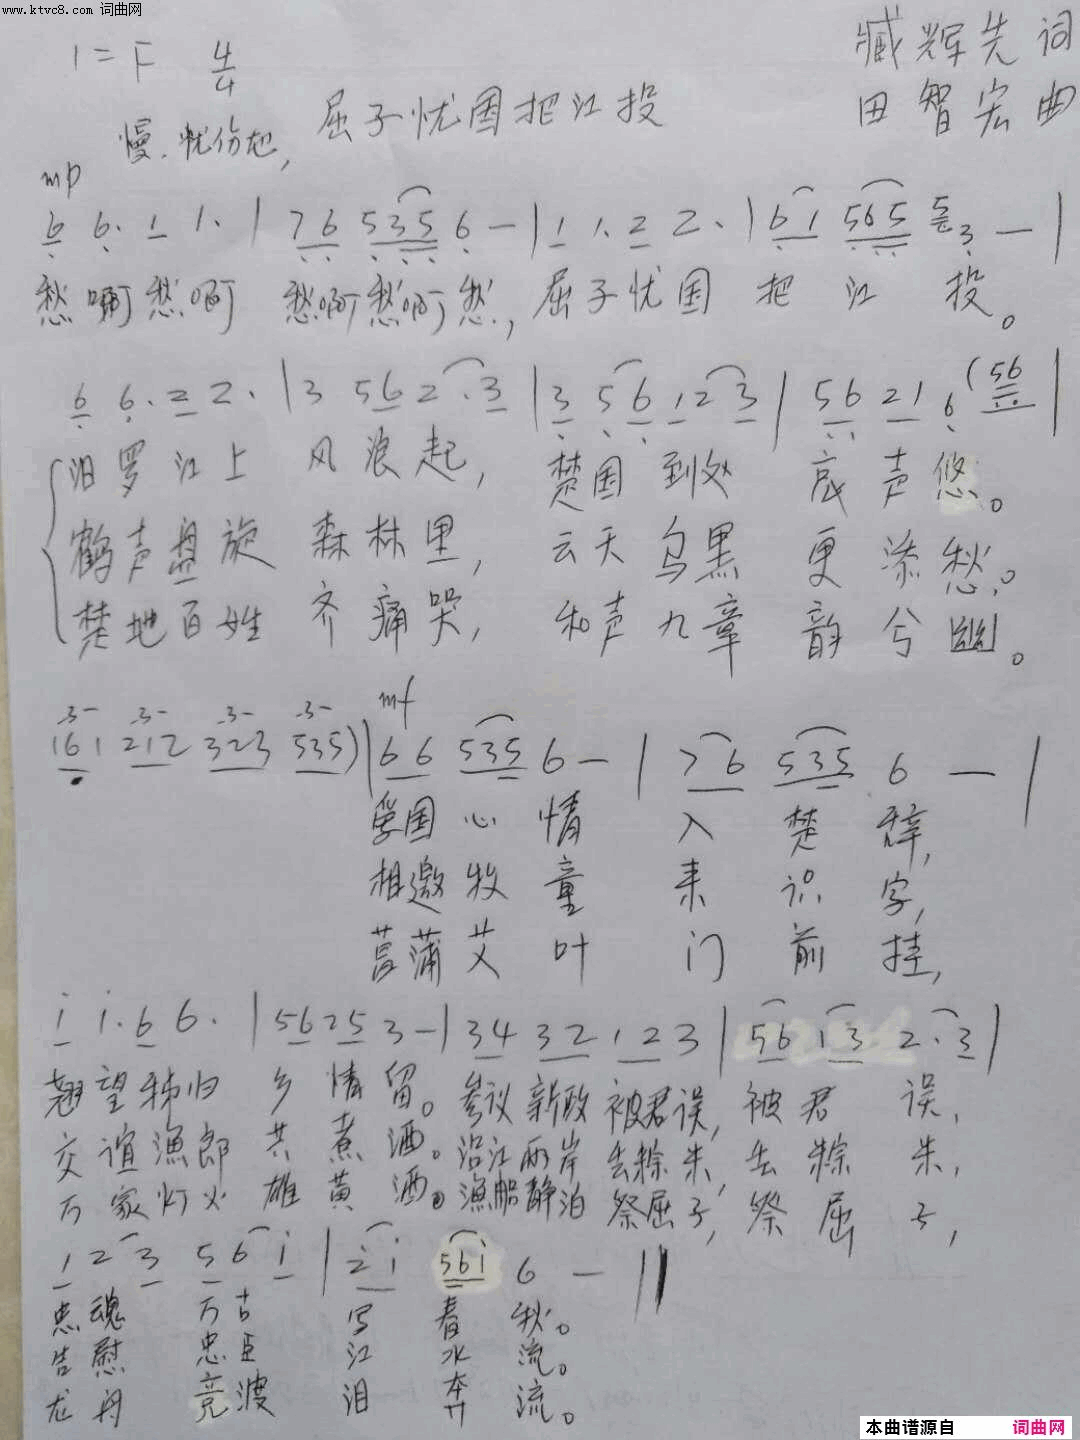 www.ktvc8.com 词曲网
1=F 4/4
臧辉先 词
田智宏 曲
屈子忧国把江投
慢.忧伤地,
mp
6 6. 1 1. | 76 535 6 — | 1 1. 2 2. | 61 565 5 3 — |
愁啊愁啊 愁啊愁啊愁, 屈子忧国 把 江 投。
6 6. 2 2. | 3 56 2. 3 | 3 5 6 1 2 3 | 56 21 6 (56 |
汨罗江上 风浪起, 楚国到处 哀声悠。
鹤声盘旋 森林里, 云天乌黑 更添愁。
楚地百姓 齐痛哭, 和声九章 韵兮幽。
mf
161 212 323 535) | 66 535 6 — | 76 535 6 — |
爱国心情 入楚辞,
相邀牧童 来识字,
菖蒲艾叶 门前挂,
i i. 6 6. | 56 25 3 — | 34 32 1 2 3 | 56 13 2. 3 |
翘望秭归 乡情留。参议新政 被君误, 被君误,
交谊渔郎 共煮酒。沿江两岸 去粽朱, 去粽朱,
万家灯火 雄黄酒。渔船静泊 祭屈子, 祭屈子,
1 2 3 5 6 i | 2 i 56i 6 — ||
忠魂 万古 写春秋。
告慰 忠臣 江水流。
龙舟 竞渡 泪奔流。
本曲谱源自 词曲网